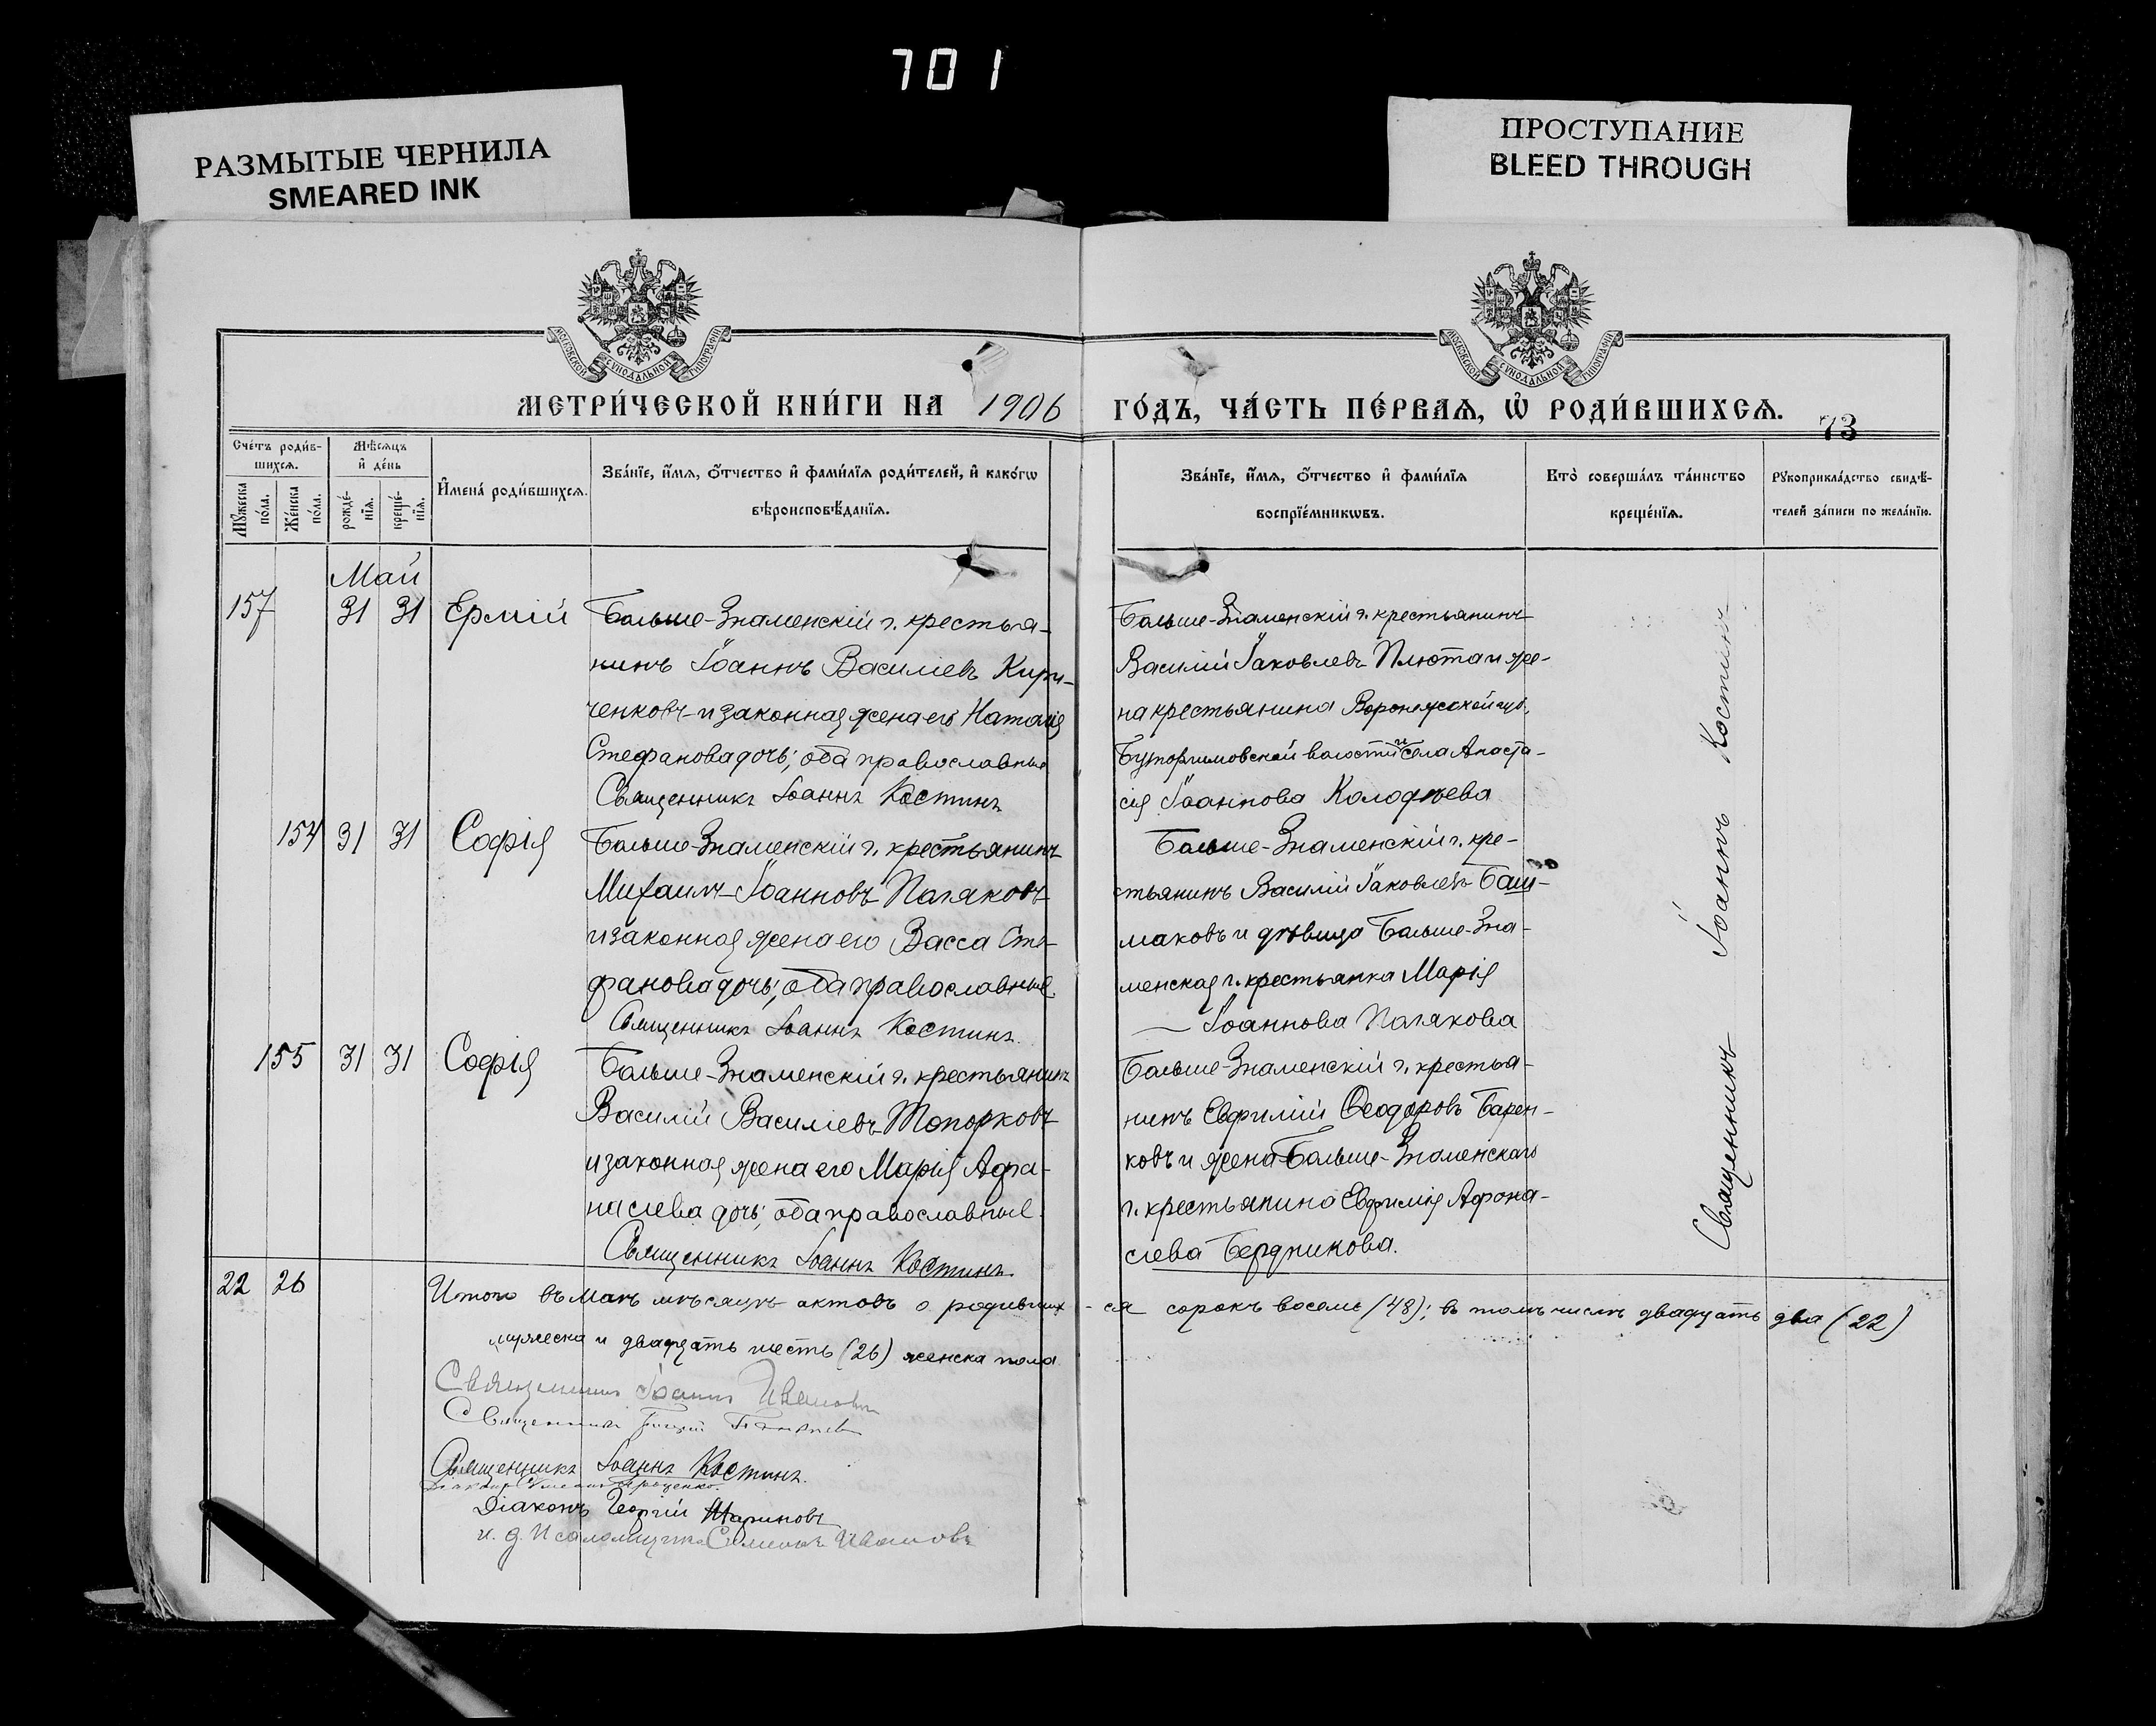 701
РАЗМЫТЫЕ ЧЕРНИЛА
SMEARED INK
ПРОСТУПАНИЕ
BLEED THROUGH
МОСКОВСКОЙ СѴНОДАЛЬНОЙ ТИПОГРАФІИ
МОСКОВСКОЙ СѴНОДАЛЬНОЙ ТИПОГРАФІИ
МЕТРИ́ЧЕСКОЙ КНИ́ГИ НА 1906 ГО́ДЪ, ЧА́СТЬ ПЕ́РВАЯ, Ѡ҆ РОДИ́ВШИХСЯ.
73
Сче́тъ роди́в-
шихся.
Мѣ́сяцъ
и҆ де́нь
Мꙋ́жеска по́ла.
Же́нска по́ла.
рожде́-
нїя.
креще́-
нїя.
И҆мена̀ роди́вшихся.
Зва́нїе, и҆́мя, ѻ҆́тчество и҆ фами́лїя роди́телей, и҆ како́гѡ
вѣроисповѣ́данїя.
Зва́нїе, и҆́мя, ѻ҆́тчество и҆ фами́лїя
воспрїе́мникѡвъ.
Кто̀ соверша́лъ та́инство
креще́нїя.
Рꙋкоприкла́дство свидѣ́-
телей за́писи по жела́нїю.
Май
157 31 31 Ермій
Больше-Знаменскій г. крестья-
нинъ Іоаннъ Василіевъ Кири-
ченковъ и законная жена его Наталія
Стефанова дочь; оба православные
Священникъ Іоаннъ Костинъ
Больше-Знаменскій г. крестьянинъ
Василій Іаковлевъ Плюта и же-
на крестьянина Воронежской губ.,
волости и села Анаста-
сія Іоаннова Колодѣева
154 31 31 Софія
Больше-Знаменскій г. крестьянинъ
Михаилъ Іоанновъ Поляковъ
и законная жена его Васса Сте-
фанова дочь; оба православные.
Священникъ Іоаннъ Костинъ.
Больше-Знаменскій г. кре-
стьянинъ Василій Іаковлевъ Баш-
маковъ и дѣвица Больше-Зна-
менская г. крестьянка Марія
Іоаннова Полякова
155 31 31 Софія
Больше-Знаменскій г. крестьянинъ
Василій Василіевъ Топорковъ
и законная жена его Марія Афа-
насіева дочь; оба православные.
Священникъ Іоаннъ Костинъ.
Больше-Знаменскій г. крестья-
нинъ Евфимій Ѳеодоровъ Барен-
ковъ и жена Больше-Знаменскаго
г. крестьянина Евфимія Афона-
сіева Бердникова.
Священникъ Іоаннъ Костинъ
22 26 Итого въ маѣ мѣсяцѣ актовъ о родивших-ся сорокъ восемь (48); въ томъ числѣ двадцать два (22)
мужеска и двадцать шесть (26) женска пола
Священникъ Іоаннъ Ивановъ
Священникъ
Священникъ Іоаннъ Костинъ.
Діаконъ Проценко.
Діаконъ Георгій Мариновъ
и. д. Псаломщика Симеонъ Ивановъ